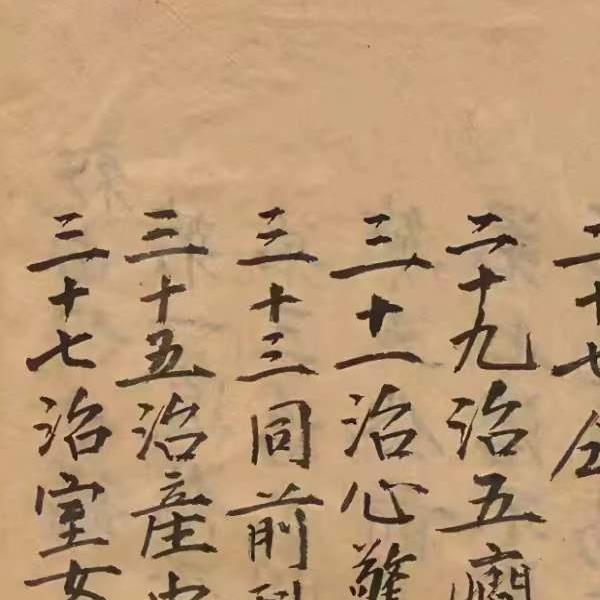 二十七
二十九治五癇
三十一治心驚
三十三同前
三十五治產
三十七治室女